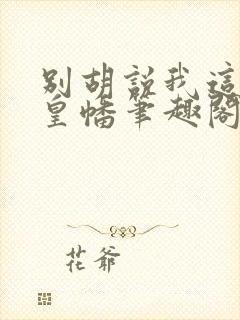 別胡說我這
皇幡筆趣閣
花爺